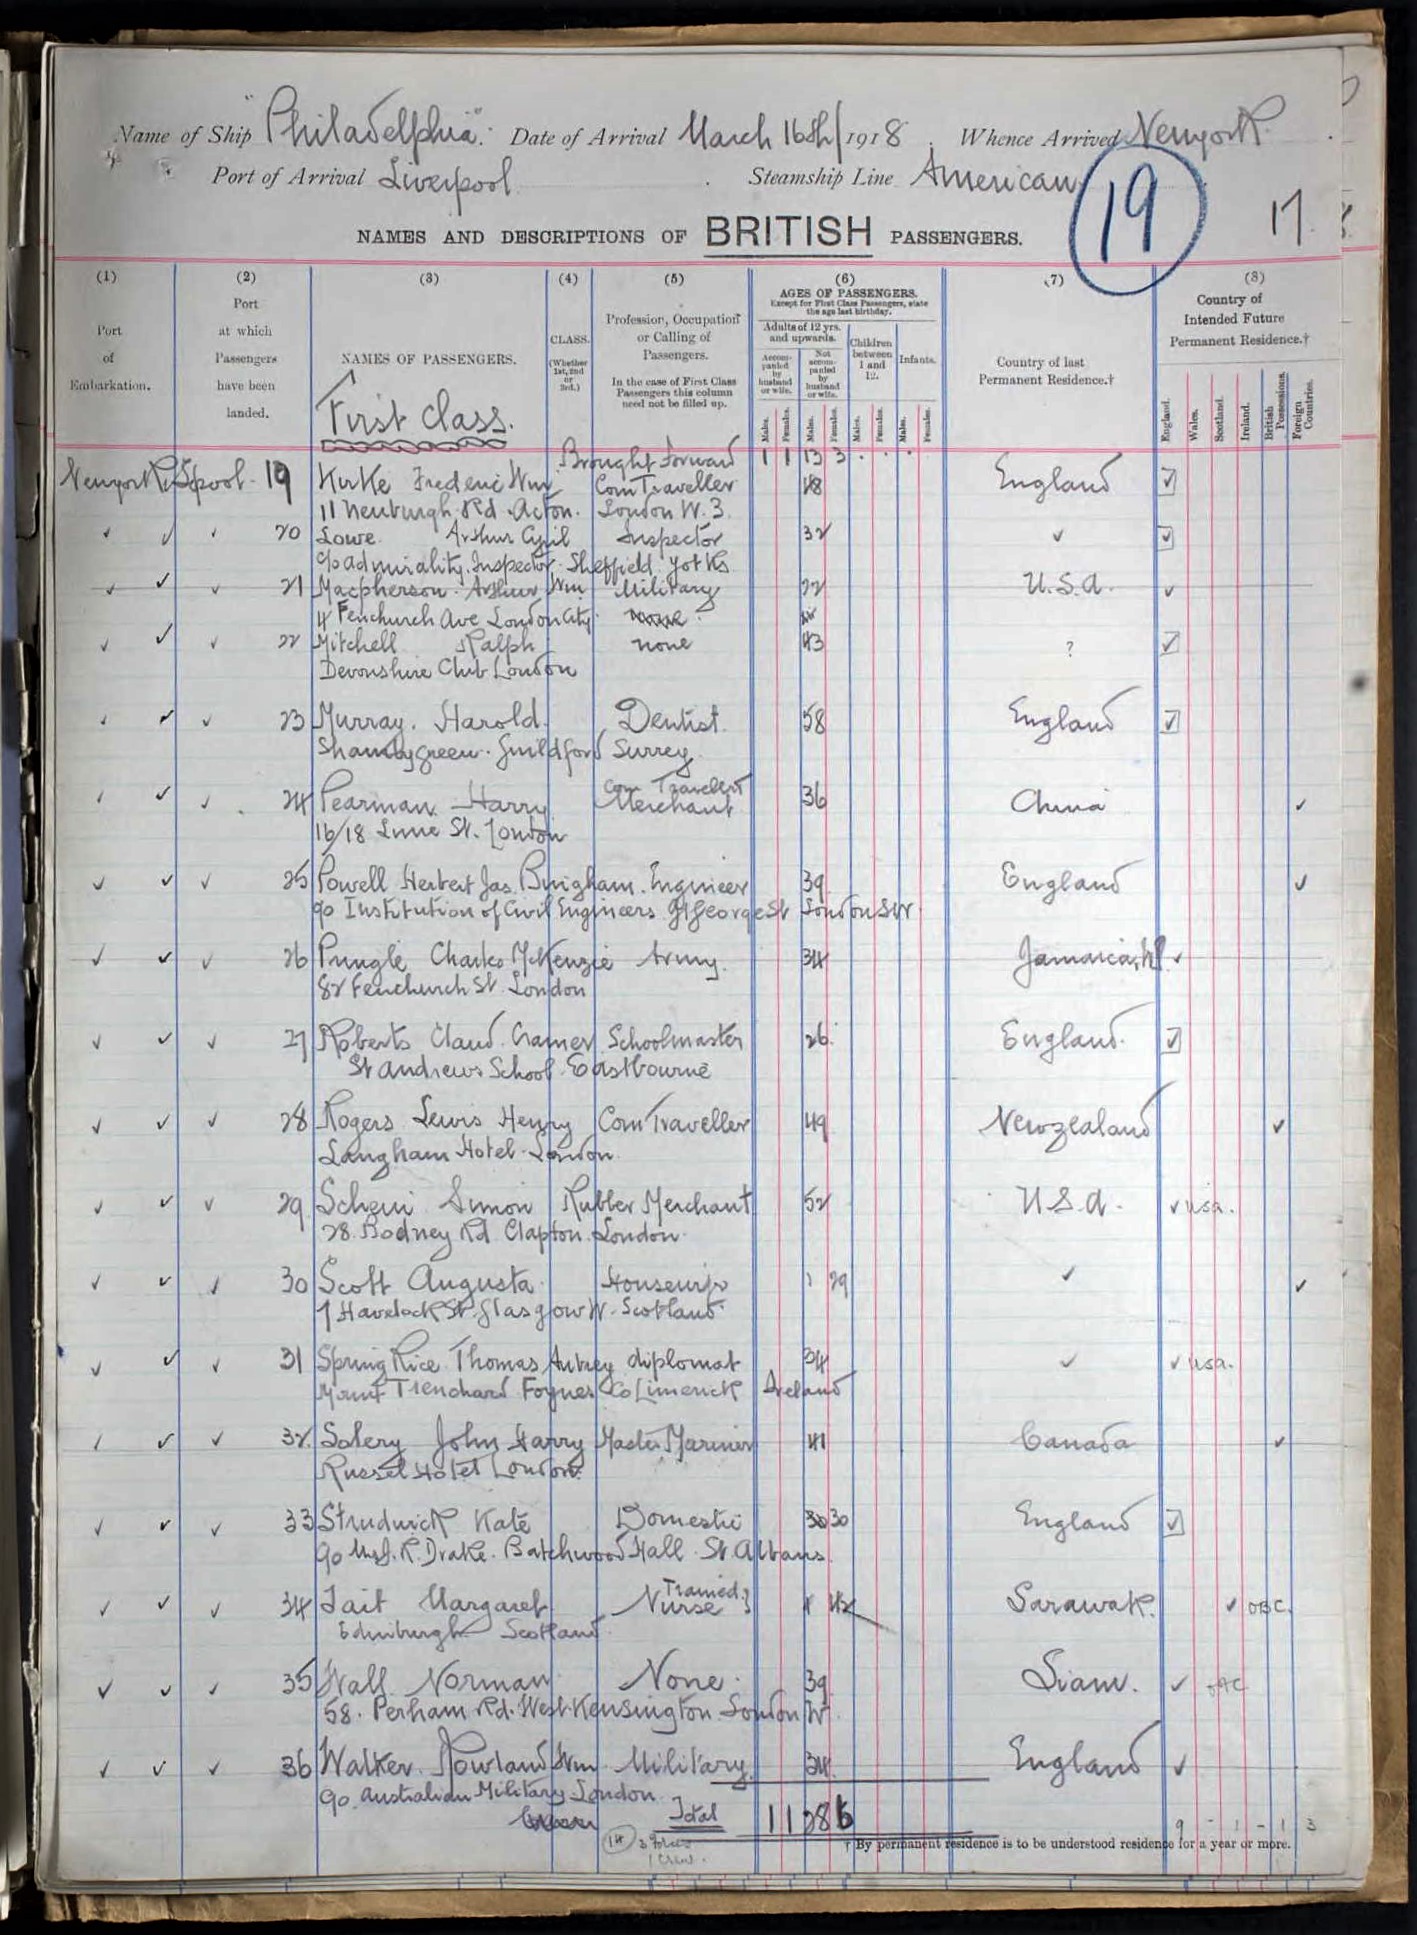 Name of Ship "Philadelphia". Date of Arrival March 16th/1918. Whence Arrived Newyork.
Port of Arrival Liverpool. Steamship Line American
19
17.
NAMES AND DESCRIPTIONS OF BRITISH PASSENGERS.
(1) (2) (3) (4) (5) (6) (7) (8)
Port of Embarkation.
Port at which Passengers have been landed.
NAMES OF PASSENGERS.
First Class.
CLASS. (Whether 1st, 2nd or 3rd.)
Profession, Occupation or Calling of Passengers.
In the case of First Class Passengers this column need not be filled up.
AGES OF PASSENGERS.
Except for First Class Passengers, state the age last birthday.
Adults of 12 yrs. and upwards.
Accompanied by husband or wife.
Not accompanied by husband or wife.
Children between 1 and 12.
Infants.
Males. Females. Males. Females. Males. Females. Males. Females.
Country of last Permanent Residence.†
Country of Intended Future Permanent Residence.†
England. Wales. Scotland. Ireland. British Possessions. Foreign Countries.
Brought Forward 1 1 13 3
Newyork L'pool 19 Kirke Frederic Wm Com Traveller 48 England ✓
11 Newburgh Rd. Acton. London W.3.
✓ ✓ 20 Lowe. Arthur Cyril Inspector 32 ✓ ✓
c/o Admirality Inspector. Sheffield Yorks
✓ ✓ ✓ 21 Macpherson. Arthur Wm Military 22 U.S.A. ✓
4 Fenchurch Ave London City.
✓ ✓ ✓ 22 Mitchell Ralph none 43 ? ✓
Devonshire Club London
✓ ✓ ✓ 23 Murray. Harold. Dentist. 58 England ✓
Shamley green. Guildford Surrey.
✓ ✓ ✓ 24 Pearman Harry Com Traveller Merchant 36 China ✓
16/18 St. London
✓ ✓ ✓ 25 Powell Herbert Jas. Bingham. Engineer 39 England ✓
c/o Institution of Civil Engineers Gt George St London SW.
✓ ✓ ✓ 26 Pringle Charles McKenzie Army. 34 Jamaica, W.I. ✓
82 Fenchurch St London
✓ ✓ ✓ 27 Roberts Claud. Cramer Schoolmaster 26. England. ✓
St Andrews School. Eastbourne
✓ ✓ ✓ 28 Rogers Lewis Henry Com Traveller 49 Newzealand ✓
Langham Hotel. London.
✓ ✓ ✓ 29. Simon Rubber Merchant 52 U.S.A. ✓ usa.
28. Rodney Rd. Clapton. London.
✓ ✓ ✓ 30 Scott Augusta. Housewife 29 ✓ ✓
7 Havelock St. Glasgow W. Scotland.
✓ ✓ ✓ 31 Spring Rice Thomas Aubrey diplomat 34 ✓ ✓ usa.
Mount Trenchard Foynes Co Limerick Ireland
✓ ✓ ✓ 32. John Harry Master Mariner 41 Canada ✓
Russel Hotel London.
✓ ✓ ✓ 33 Strudwick Kate Domestic 30 30 England ✓
c/o R. Drake. Batchwood Hall. St. Albans.
✓ ✓ ✓ 34 Tait Margaret Trained Nurse 42 Sarawak. ✓ OBC.
Edinburgh Scotland
✓ ✓ ✓ 35 Wall. Norman None. 39 Siam. ✓
58. Perham Rd. West Kensington London W.
✓ ✓ ✓ 36 Walker. Rowland Wm. Military. 34. England ✓
c/o. Australian Military London.
Total 1 1 28 6
9 - 1 - 1 3
† By permanent residence is to be understood residence for a year or more.
14
1 Crew.